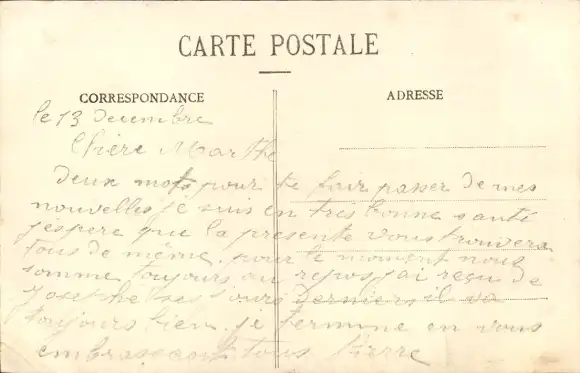 CARTE POSTALE
CORRESPONDANCE
ADRESSE
le 13 decembre
Chère Marthe
deux mots pour te fair passer de mes
nouvelles je suis en tres bonne santé
jespere que la presente vous trouvera
tous de même. pour le moment nous
somme toujours au repos jai reçu de
Joseph ses jours derniers il va
toujours bien. je termine en vous
embrassant tous Pierre